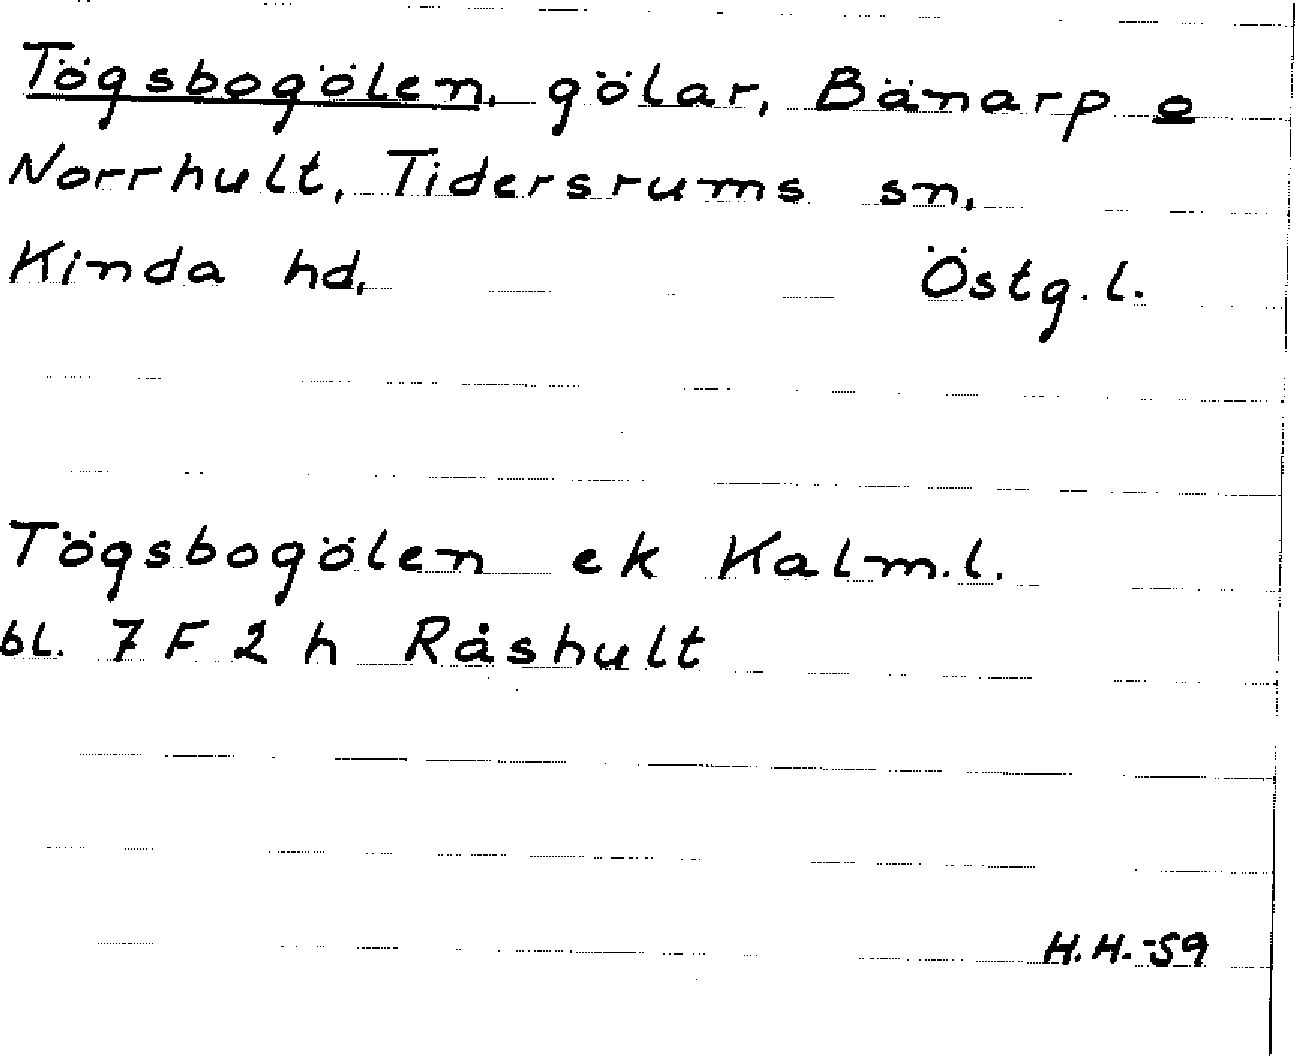 Tögsbogölen, gölar, Bänarp o
Norrhult, Tidersrums sn,
Kinda hd, Östg.l.
Tögsbogölen ek Kalm.l.
bl. 7 F 2 h Råshult
H.H.-59